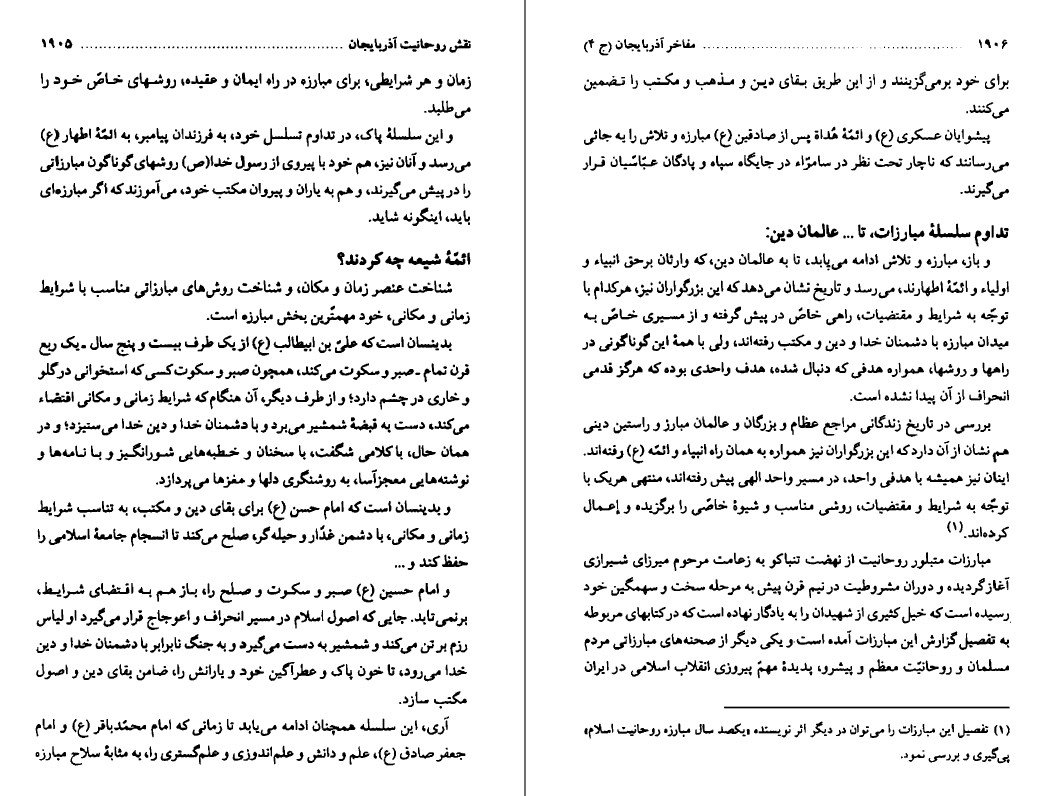 نقش روحانیت آذربایجان ........................................ ۱۹۰۵
زمان و هر شرایطی، برای مبارزه در راه ایمان و عقیده، روشهای خاصّ خود را
می‌طلبد.
و این سلسلهٔ پاک، در تداوم تسلسل خود، به فرزندان پیامبر، به ائمّهٔ اطهار (ع)
می‌رسد و آنان نیز، هم خود با پیروی از رسول خدا(ص) روشهای گوناگون مبارزاتی
را در پیش می‌گیرند، و هم به یاران و پیروان مکتب خود، می‌آموزند که اگر مبارزه‌ای
باید، اینگونه شاید.
ائمّهٔ شیعه چه کردند؟
شناخت عنصر زمان و مکان، و شناخت روش‌های مبارزاتی مناسب با شرایط
زمانی و مکانی، خود مهمّترین بخش مبارزه است.
بدینسان است که علیّ بن ابیطالب (ع) از یک طرف بیست و پنج سال ـ یک ربع
قرن تمام ـ صبر و سکوت می‌کند، همچون صبر و سکوت کسی که استخوانی در گلو
و خاری در چشم دارد؛ و از طرف دیگر، آن هنگام که شرایط زمانی و مکانی اقتضاء
می‌کند، دست به قبضهٔ شمشیر می‌برد و با دشمنان خدا و دین خدا می‌ستیزد؛ و در
همان حال، با کلامی شگفت، با سخنان و خطبه‌هایی شورانگیز و با نامه‌ها و
نوشته‌هایی معجزآسا، به روشنگری دلها و مغزها می‌پردازد.
و بدینسان است که امام حسن (ع) برای بقای دین و مکتب، به تناسب شرایط
زمانی و مکانی، با دشمن غدّار و حیله‌گر، صلح می‌کند تا انسجام جامعهٔ اسلامی را
حفظ کند و ...
و امام حسین (ع) صبر و سکوت و صلح را، باز هم به اقتضای شرایط،
برنمی‌تابد. جایی که اصول اسلام در مسیر انحراف و اعوجاج قرار می‌گیرد او لباس
رزم بر تن می‌کند و شمشیر به دست می‌گیرد و به جنگ نابرابر با دشمنان خدا و دین
خدا می‌رود، تا خون پاک و عطرآگین خود و یارانش را، ضامن بقای دین و اصول
مکتب سازد.
آری، این سلسله همچنان ادامه می‌یابد تا زمانی که امام محمّدباقر (ع) و امام
جعفر صادق (ع)، علم و دانش و علم‌اندوزی و علم‌گستری را، به مثابهٔ سلاح مبارزه
۱۹۰۶ ........................................ مفاخر آذربایجان (ج ۴)
برای خود برمی‌گزینند و از این طریق بقای دین و مذهب و مکتب را تضمین
می‌کنند.
پیشوایان عسکری (ع) و ائمّهٔ هُداة پس از صادقین (ع) مبارزه و تلاش را به جائی
می‌رسانند که ناچار تحت نظر در سامرّاء در جایگاه سپاه و پادگان عبّاسیان قرار
می‌گیرند.
تداوم سلسلهٔ مبارزات، تا ... عالمان دین:
و باز، مبارزه و تلاش ادامه می‌یابد، تا به عالمان دین، که وارثان برحق انبیاء و
اولیاء و ائمّهٔ اطهارند، می‌رسد و تاریخ نشان می‌دهد که این بزرگواران نیز، هرکدام با
توجّه به شرایط و مقتضیات، راهی خاصّ در پیش گرفته و از مسیری خاصّ به
میدان مبارزه با دشمنان خدا و دین و مکتب رفته‌اند، ولی با همهٔ این گوناگونی در
راهها و روشها، همواره هدفی که دنبال شده، هدف واحدی بوده که هرگز قدمی
انحراف از آن پیدا نشده است.
بررسی در تاریخ زندگانی مراجع عظام و بزرگان و عالمان مبارز و راستین دینی
هم نشان از آن دارد که این بزرگواران نیز همواره به همان راه انبیاء و ائمّه (ع) رفته‌اند.
اینان نیز همیشه با هدفی واحد، در مسیر واحد الهی پیش رفته‌اند، منتهی هریک با
توجّه به شرایط و مقتضیات، روشی مناسب و شیوهٔ خاصّی را برگزیده و إعمال
کرده‌اند.(۱)
مبارزات متبلور روحانیت از نهضت تنباکو به زعامت مرحوم میرزای شیرازی
آغاز گردیده و دوران مشروطیت در نیم قرن پیش به مرحله سخت و سهمگین خود
رسیده است که خیل کثیری از شهیدان را به یادگار نهاده است که در کتابهای مربوطه
به تفصیل گزارش این مبارزات آمده است و یکی دیگر از صحنه‌های مبارزاتی مردم
مسلمان و روحانیّت معظم و پیشرو، پدیدهٔ مهمّ پیروزی انقلاب اسلامی در ایران
(۱) تفصیل این مبارزات را می‌توان در دیگر اثر نویسنده «یکصد سال مبارزه روحانیت اسلام»
پی‌گیری و بررسی نمود.